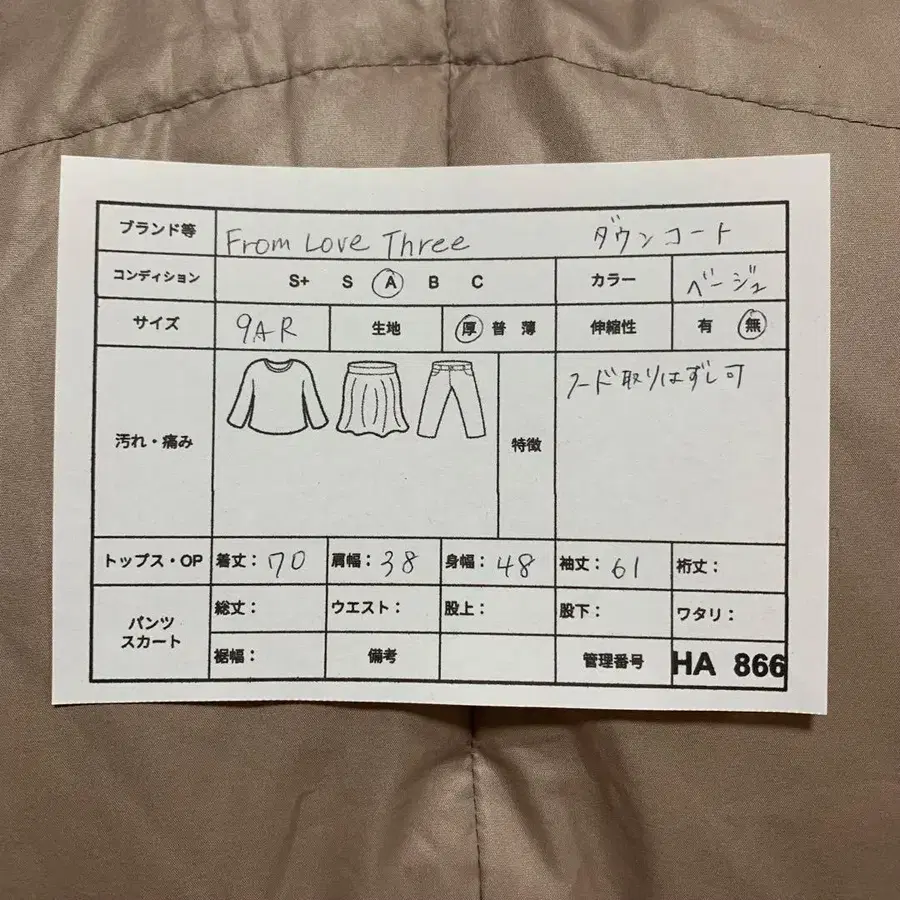 ブランド等 From Love Three ダウンコート
コンディション S+ S A B C カラー ベージュ
サイズ 9AR 生地 厚 普 薄 伸縮性 有 無
汚れ・痛み 特徴 フード取りはずし可
トップス・OP 着丈： 70 肩幅： 38 身幅： 48 袖丈： 61 裄丈：
パンツ
スカート
総丈： ウエスト： 股上： 股下： ワタリ：
裾幅： 備考 管理番号 HA 866